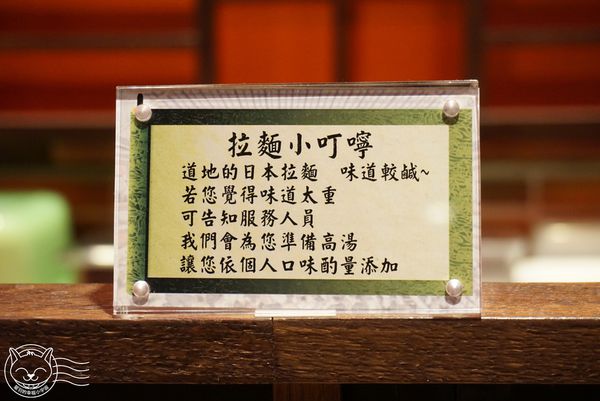 拉麵小叮嚀
道地的日本拉麵 味道較鹹~
若您覺得味道太重
可告知服務人員
我們會為您準備高湯
讓您依個人口味酌量添加